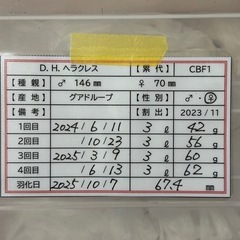 D. H. ヘラクレス 【累代】 CBF1
【種親】 ♂ 146㎜ ♀ 70㎜
【産地】 グアドループ 【性別】 ♂・♀
【備考】 【割出】 2023/11
1回目 2024/6/11 3ℓ 42g
2回目 /10/23 3ℓ 56g
3回目 2025/3/9 3ℓ 60g
4回目 /6/13 3ℓ 62g
羽化日 2025/10/7 67.4㎜